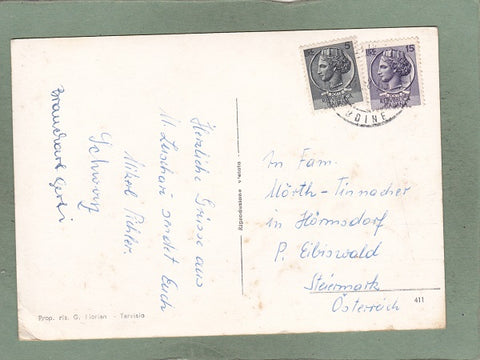 Herzliche Grüsse aus
M. Luschari sendet Euch
Nikol. Pichler.
Schwarz
5
15
UDINE
An Fam.
Mörth-Tinnacher
in Hörmsdorf
P. Eibiswald
Steiermark
Österreich
Riproduzione vietata
Prop. ris. G. Florian - Tarvisio
411